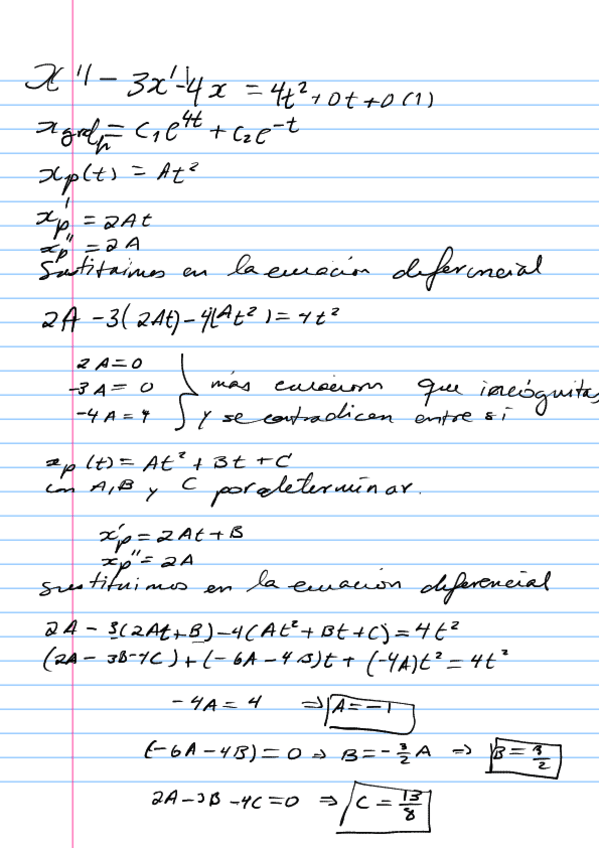 x'' - 3x' - 4x = 4t² + 0t + 0(1)
x = C₁e^{4t} + C₂e^{-t}
xp(t) = At²
xp' = 2At
xp'' = 2A
Sustituimos en la ecuación diferencial
2A - 3(2At) - 4(At²) = 4t²
2A = 0
-3A = 0 más ecuaciones que incógnitas
-4A = 4 y se contradicen entre sí
xp(t) = At² + Bt + C
con A, B y C por determinar.
xp' = 2At + B
xp'' = 2A
sustituimos en la ecuación diferencial
2A - 3(2At + B) - 4(At² + Bt + C) = 4t²
(2A - 3B - 4C) + (-6A - 4B)t + (-4A)t² = 4t²
-4A = 4 ⇒ A = -1
(-6A - 4B) = 0 ⇒ B = -3/2 A ⇒ B = 3/2
2A - 3B - 4C = 0 ⇒ C = 13/8